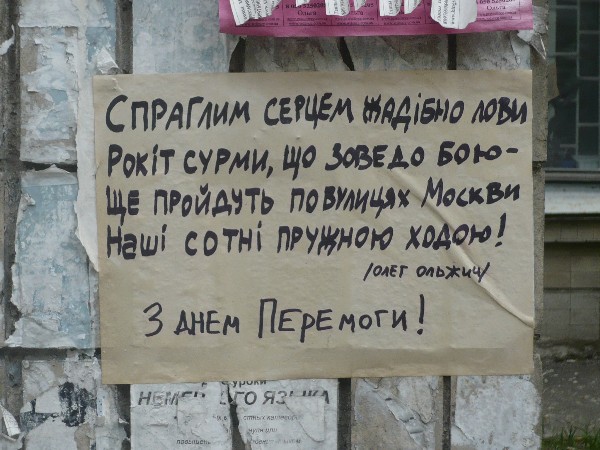 Ольга
Ольга
Спраглим серцем жадібно лови
Рокіт сурми, що зове до бою-
Ще пройдуть по вулицях Москви
Наші сотні пружною ходою!
/Олег Ольжич/
З днем Перемоги!
уроки
ЯЗЫКА